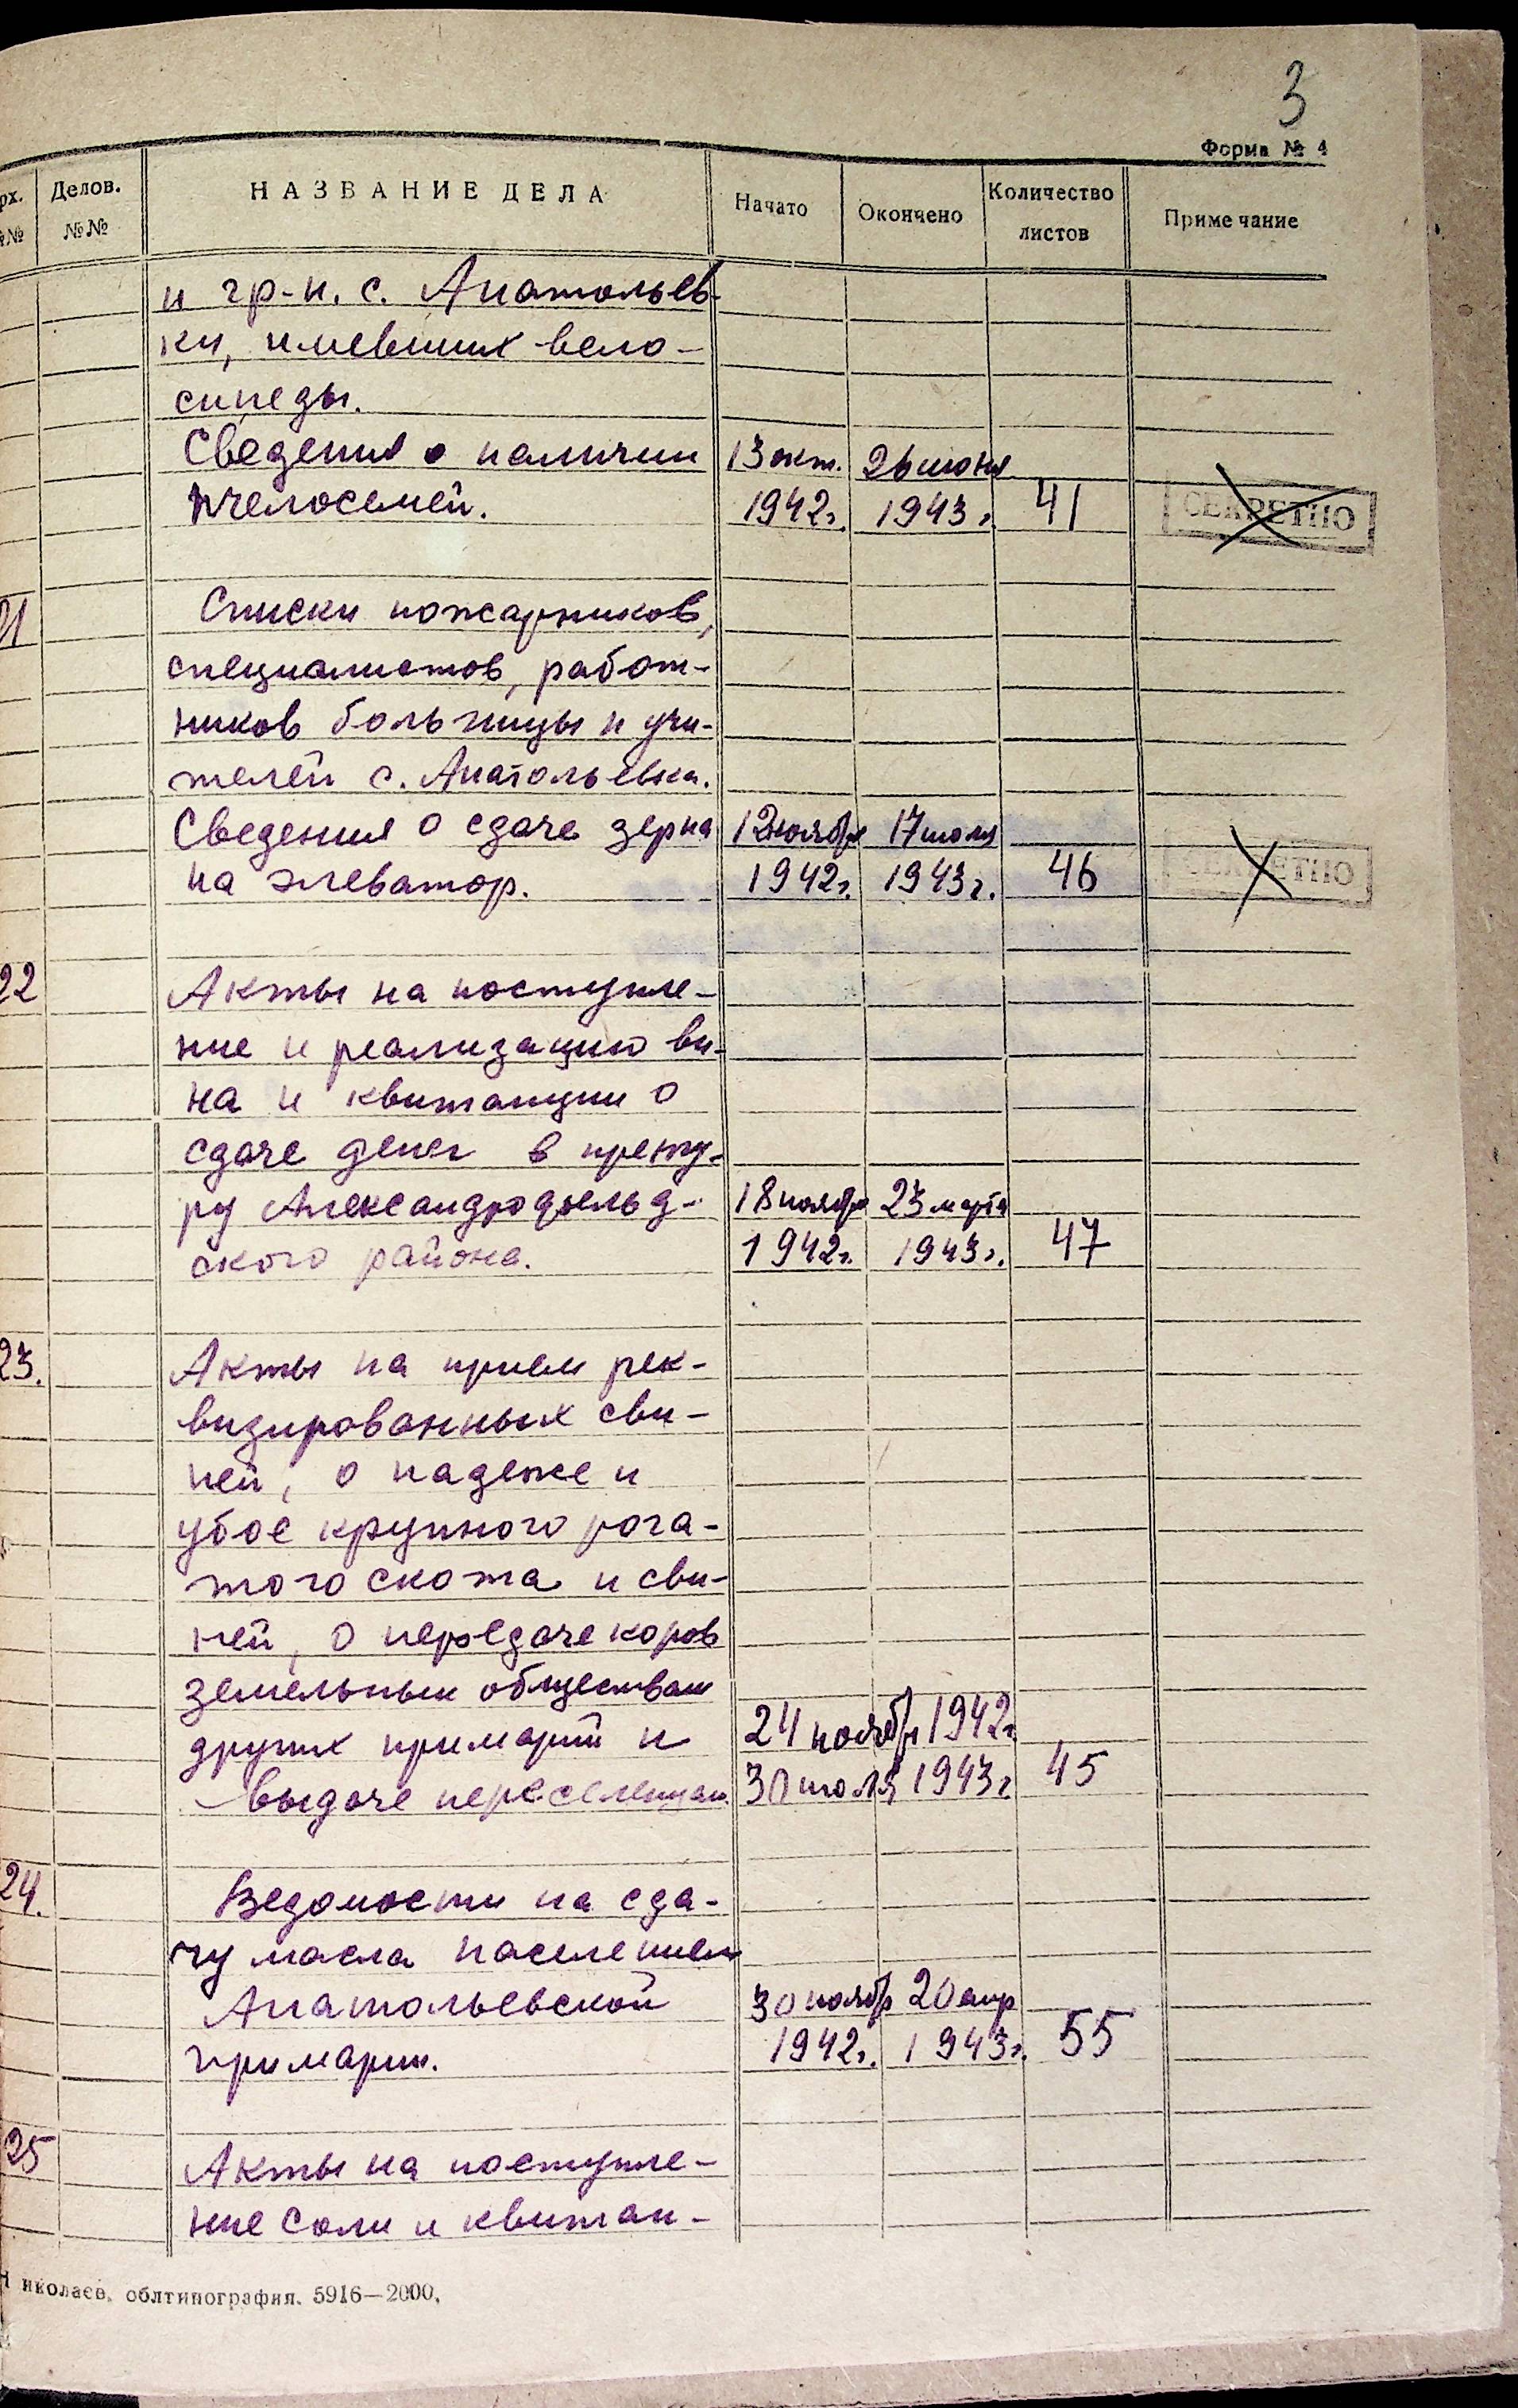 3
Форма № 4
рх. №№ Делов. №№ НАЗВАНИЕ ДЕЛА Начато Окончено Количество листов Примечание
и гр-н. с. Анатольев-
ки, имевших вело-
сипеды.
Сведения о наличии 13 окт. 26 июня
пчелосемей. 1942г. 1943г. 41 СЕКРЕТНО
21 Списки пожарников,
специалистов, работ-
ников больницы и учи-
телей с. Анатольевки.
Сведения о сдаче зерна 12 ноября 17 июля
на элеватор. 1942г. 1943г. 46 СЕКРЕТНО
22 Акты на поступле-
ние и реализацию ви-
на и квитанции о
сдаче денег в прету-
ру Александрофельд- 18 ноября 23 марта
ского района. 1942г. 1943г. 47
23. Акты на прием рек-
визированных сви-
ней, о падеже и
убое крупного рога-
того скота и сви-
ней, о передаче коров
земельным обществам
других примарий и 24 ноябр 1942г.
выдаче переселенцам. 30 июля 1943г 45
24. Ведомости на сда-
чу масла населением
Анатольевской 30 ноябр 20 апр
примарии. 1942г. 1943г. 55
25 Акты на поступле-
ние соли и квитан-
Николаев, облтипография. 5916—2000.